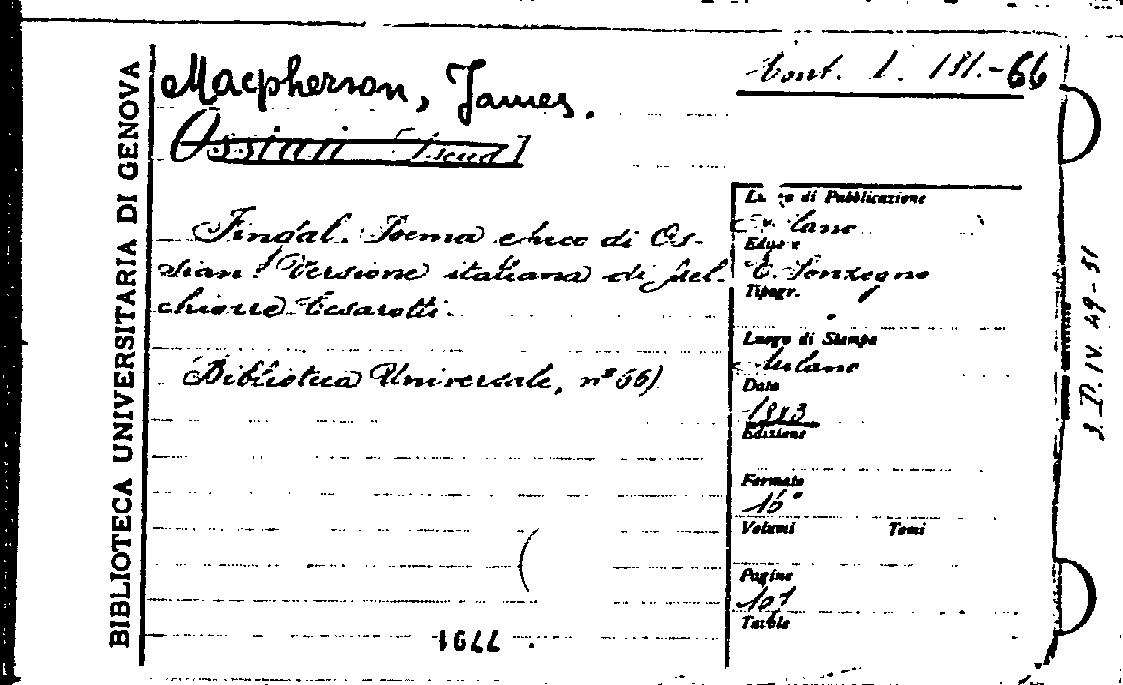 BIBLIOTECA UNIVERSITARIA DI GENOVA
Macpherson, James.
Cont. 1. 181.-66
Fingal. Poema epico di Os-
sian. Versione italiana di Mel-
chiorre Cesarotti.
Biblioteca Universale, nº 66)
Luogo di Pubblicazione
Milano
Editore
E. Sonzogno
Tipogr.
Luogo di Stampa
Milano
Data
1883
Edizione
Formato
16º
Volumi Tomi
Pagine
107
Tavole
3. D. IV. 49-51